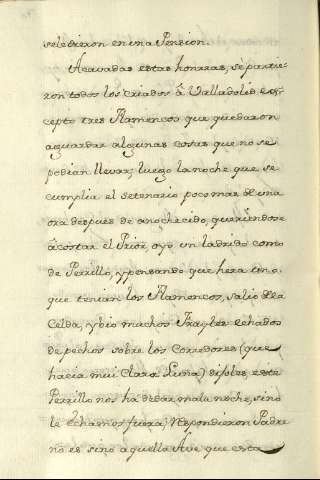 selebieron en una Pension.
Acavadas estas honrras, se partie-
ron todos los criados â Valladolid ex-
cepto tres Flamencos que quedaron
aguardar algunas cosas que no se
podian llevar; luego la noche que se
cumplia el setenario poco mas de una
ora despues de anochecido, queriendose
âcostar el Prior, oyo un ladrido como
de Perrillo, y pensando que hera uno
que tenian los Flamencos, salio de la
Celda, y vio muchos Frayles echados
de pechos sobre los Corredores (que
hacia mui Clara Luna) dijoles, este
Perrillo nos ha de dar mala noche, sino
le echamos fuera; Respondieron Padre
no es sino aquella Ave que esta